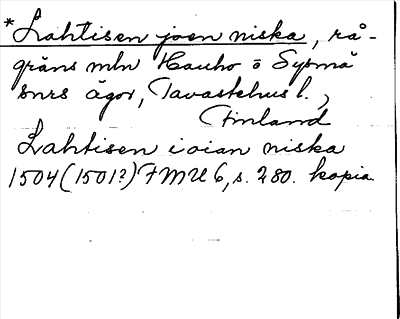 *Lahtisen joen niska, rå-
gräns mln Hauho o Sysmä
snrs ägor, Tavastehus l.,
Finland
Lahtisen ioian niska
1504 (1501?) FMU 6, s. 280. kopia